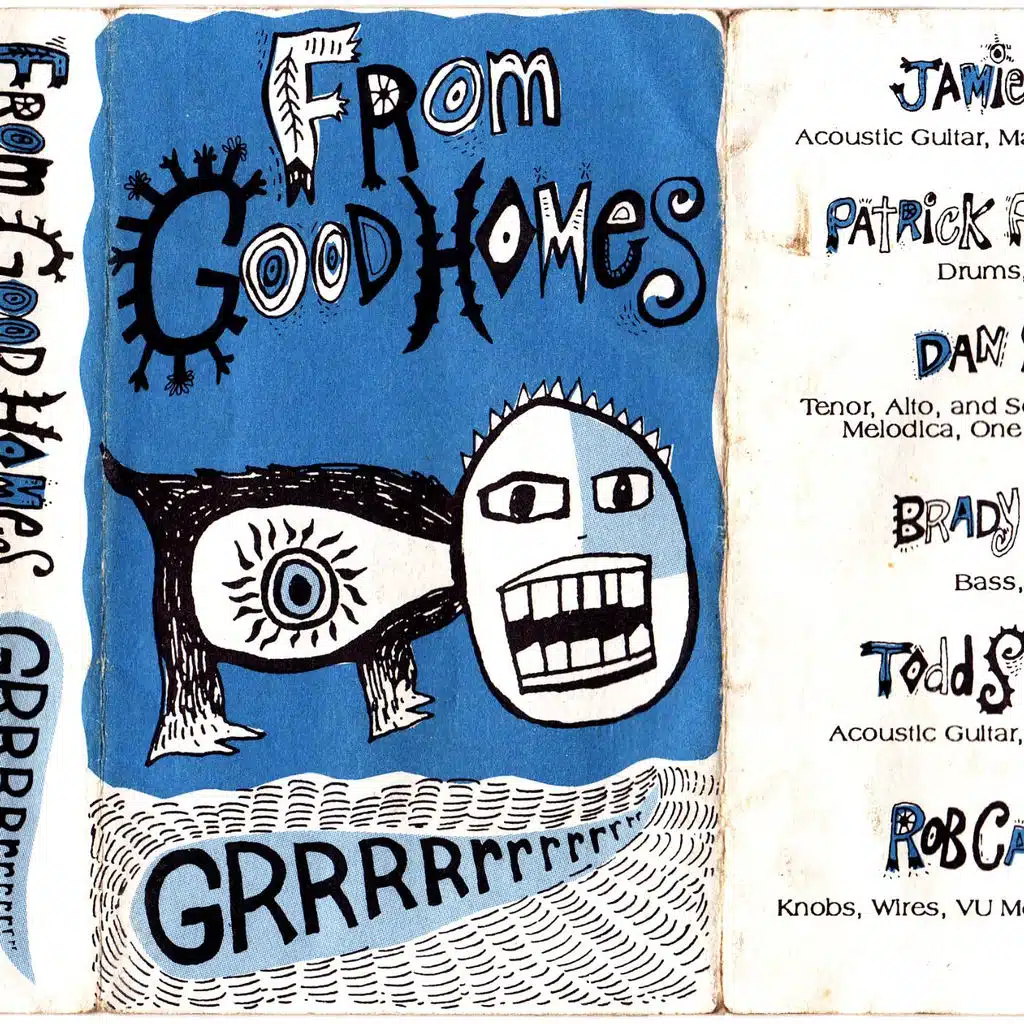 FROM GOOD HOMES GRRRRrrrrrrrr
FROM
GOOD HOMES
GRRRRrrrrrrrr
JAMIE
Acoustic Guitar,
PATRICK
Drums,
DAN
Tenor, Alto, and
Melodica, One
BRADY
Bass,
TODD
Acoustic Guitar,
ROB
Knobs, Wires, VU